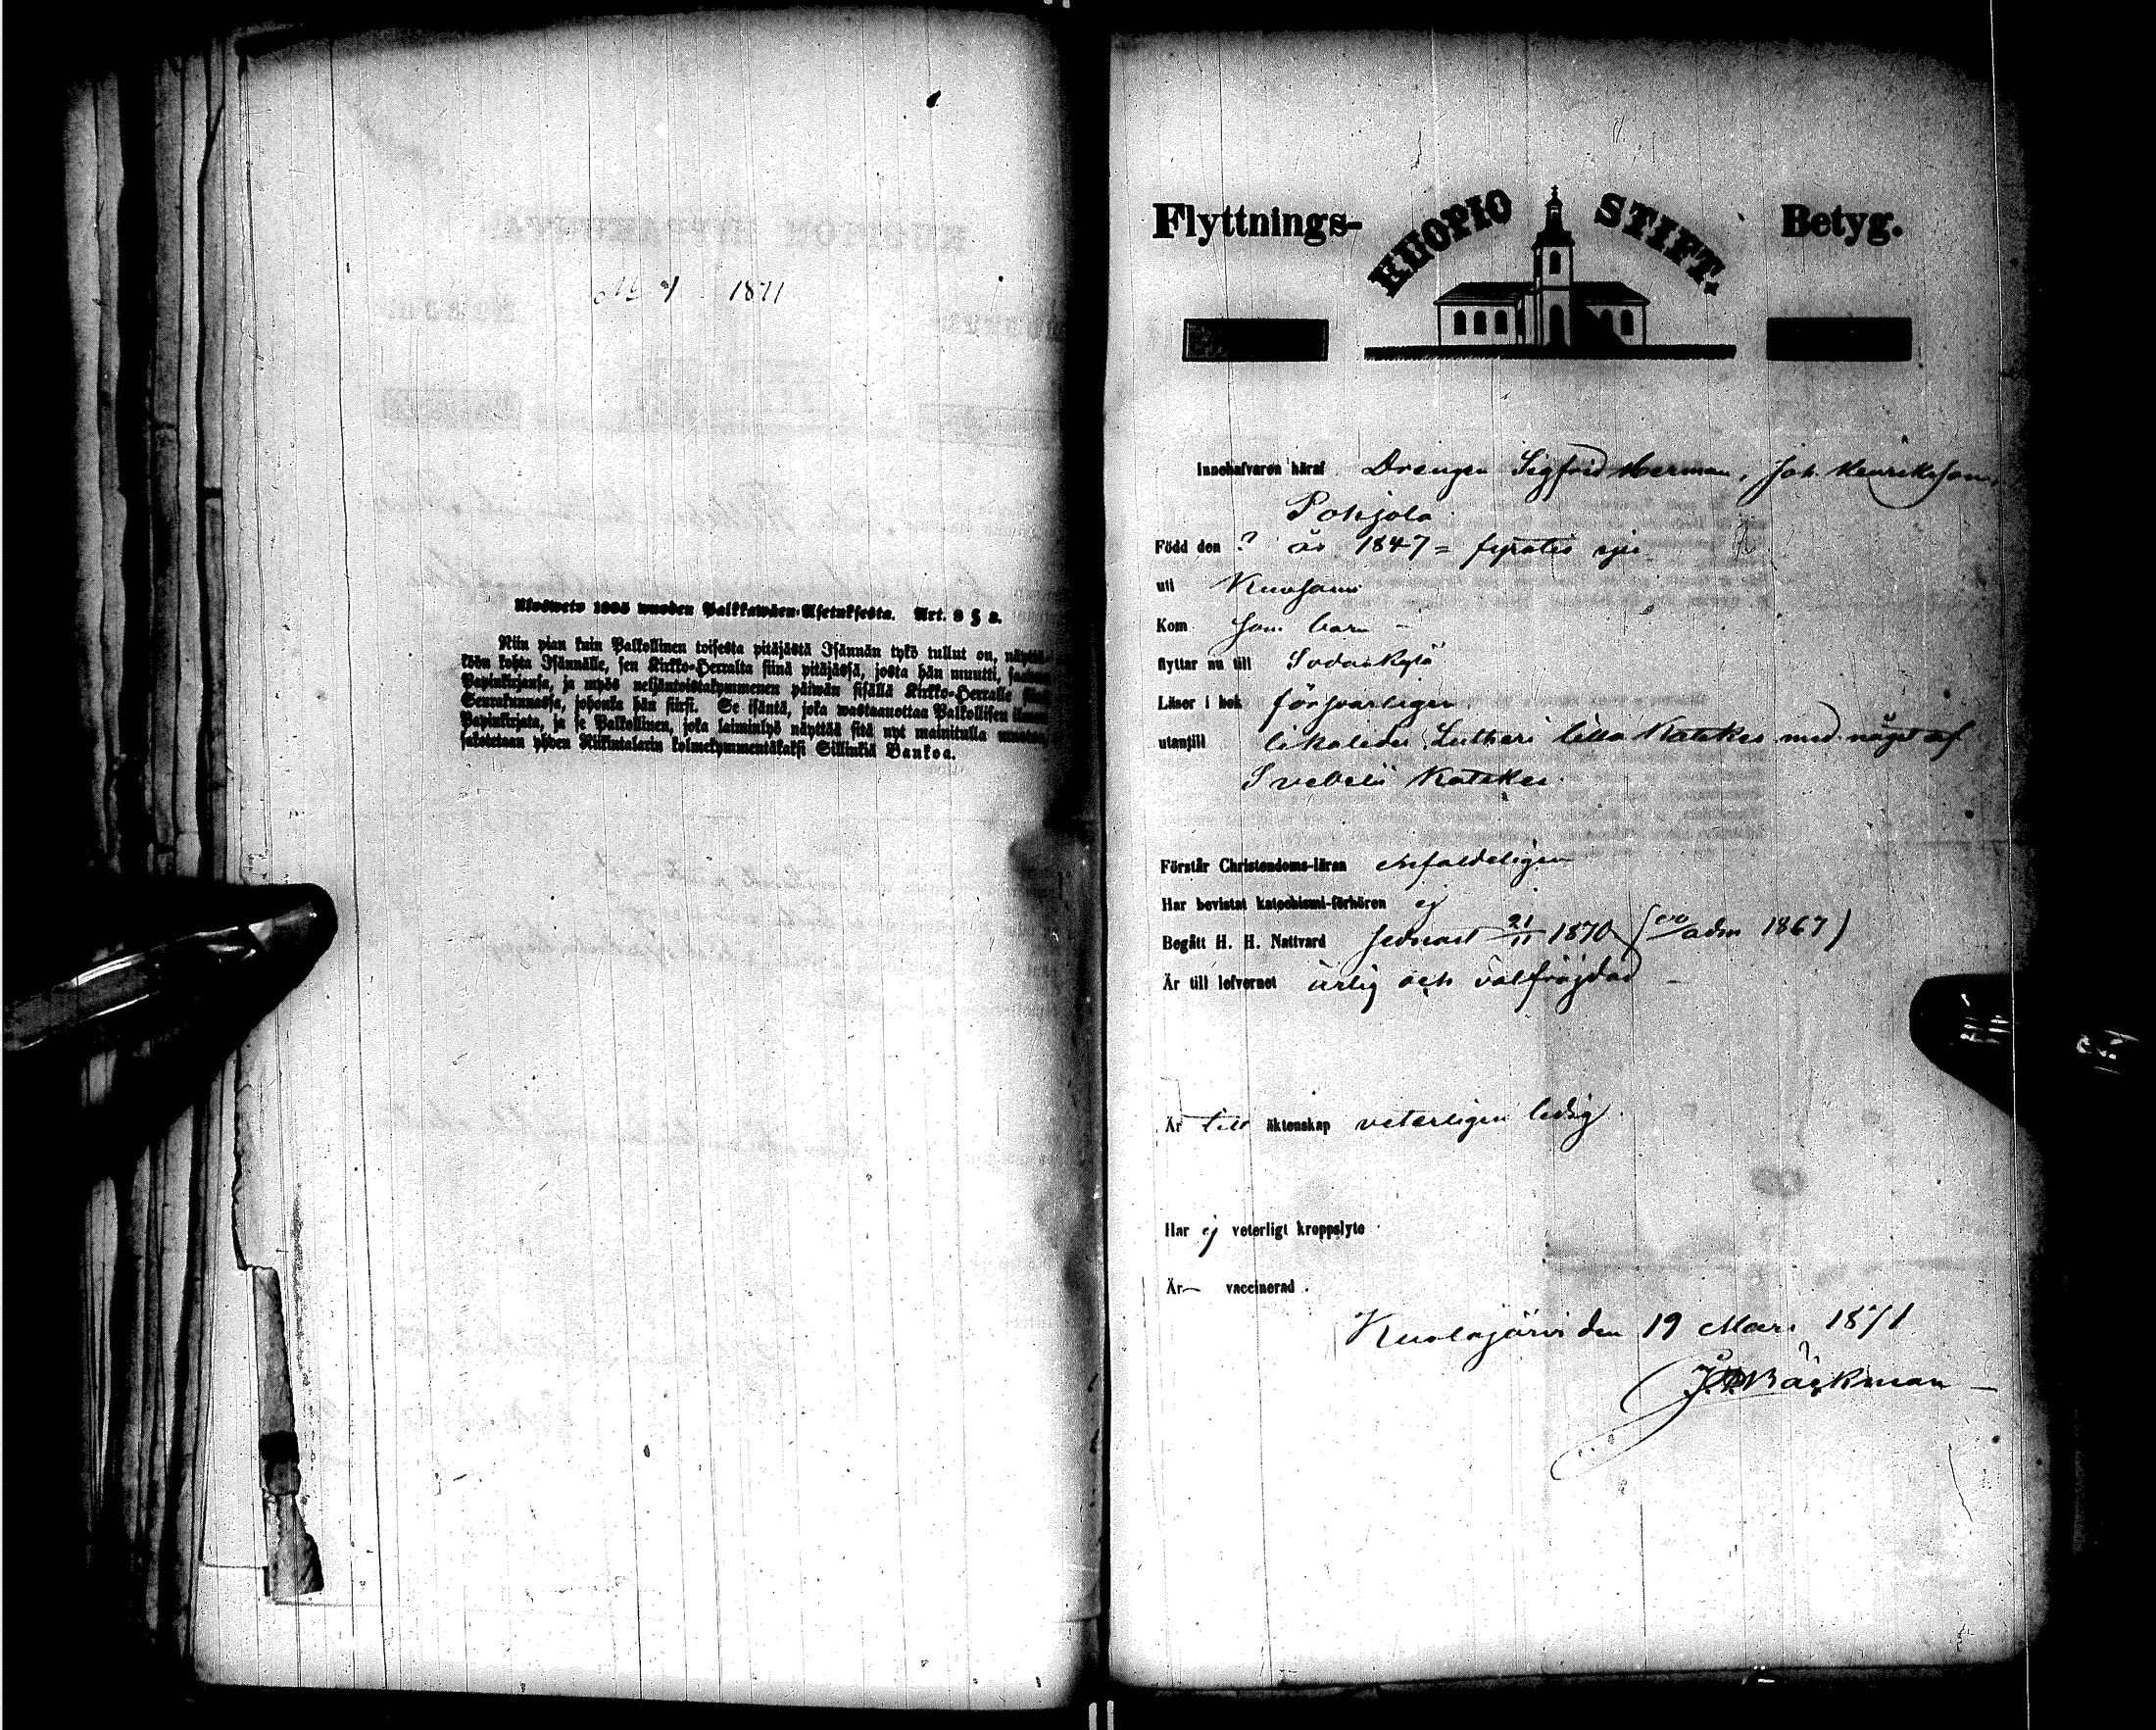 № 1 1871
Ulosweto 1805 wuoden Palkkawäen-Asetuksesta. Art. 8 § 2.
Niin pian kuin Palkollinen toisesta pitäjästä Isännän tykö tullut on, näyttä-
köön kohta Isännälle, sen Kirkko-Herralta siinä pitäjässä, josta hän muutti, saadun
Papinkirjansa, ja myös neljäntoistakymmenen päiwän sisällä Kirkko-Herralle siinä
Seurakunnassa, johonka hän siirsi. Se isäntä, joka wastaanottaa Palkollisen ilman
Papinkirjata, ja se Palkollinen, joka laiminlyö näyttää sitä nyt mainitulla muotoa,
sakotetaan yhden Riikintalarin kolmekymmentäkaksi Sillinkiä Bankoa.
Flyttnings- KUOPIO STIFT. Betyg.
Innehafvaren häraf Drengen Sigfrid Herman, Joh. Henriksson,
Pohjola
Född den ? år 1847 = fyratio sju
uti Kuusamo
Kom som barn –
flyttar nu till Sodankylä
Läser i bok försvarligen
utantill likaledes Lutheri lilla Katekes med något af
Svebelii Katekes.
Förstår Christendoms-läran enfaldeligen
Har bevistat katechismi-förhören ej
Begått H. H. Nattvard sednast 21/11 1870 ( adm 1867)
Är till lefvernet ärlig och välfräjdad –
Är till äktenskap veterligen ledig.
Har ej veterligt kroppslyte
Är – vaccinerad.
Kuolajärvi den 19 Mars 1871
Bäckman –